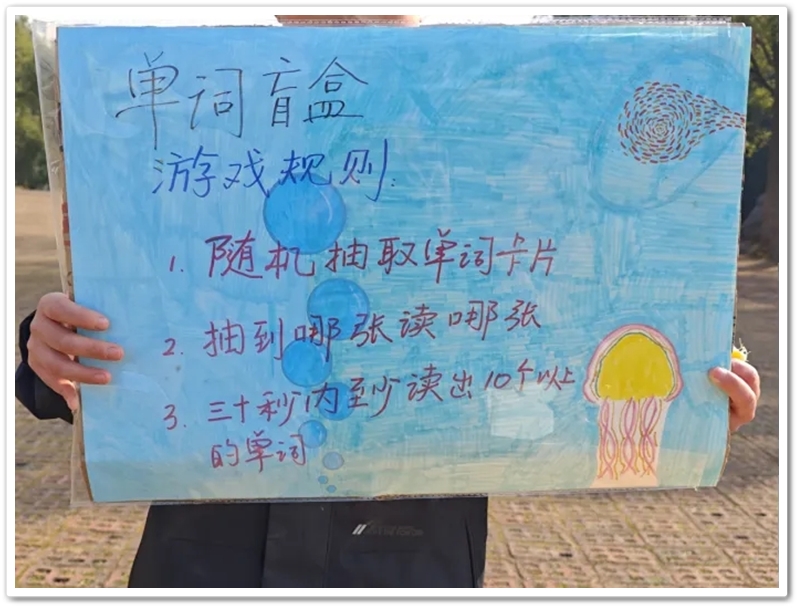 单词盲盒
游戏规则:
1. 随机抽取单词卡片
2. 抽到哪张读哪张
3. 三十秒内至少读出10个以上
的单词